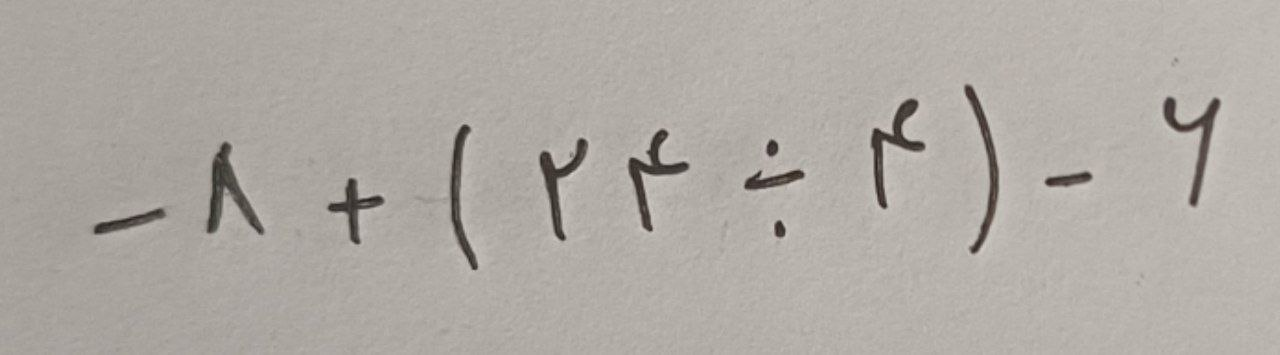 -۸ + (۲۴ ÷ ۴) - ۶